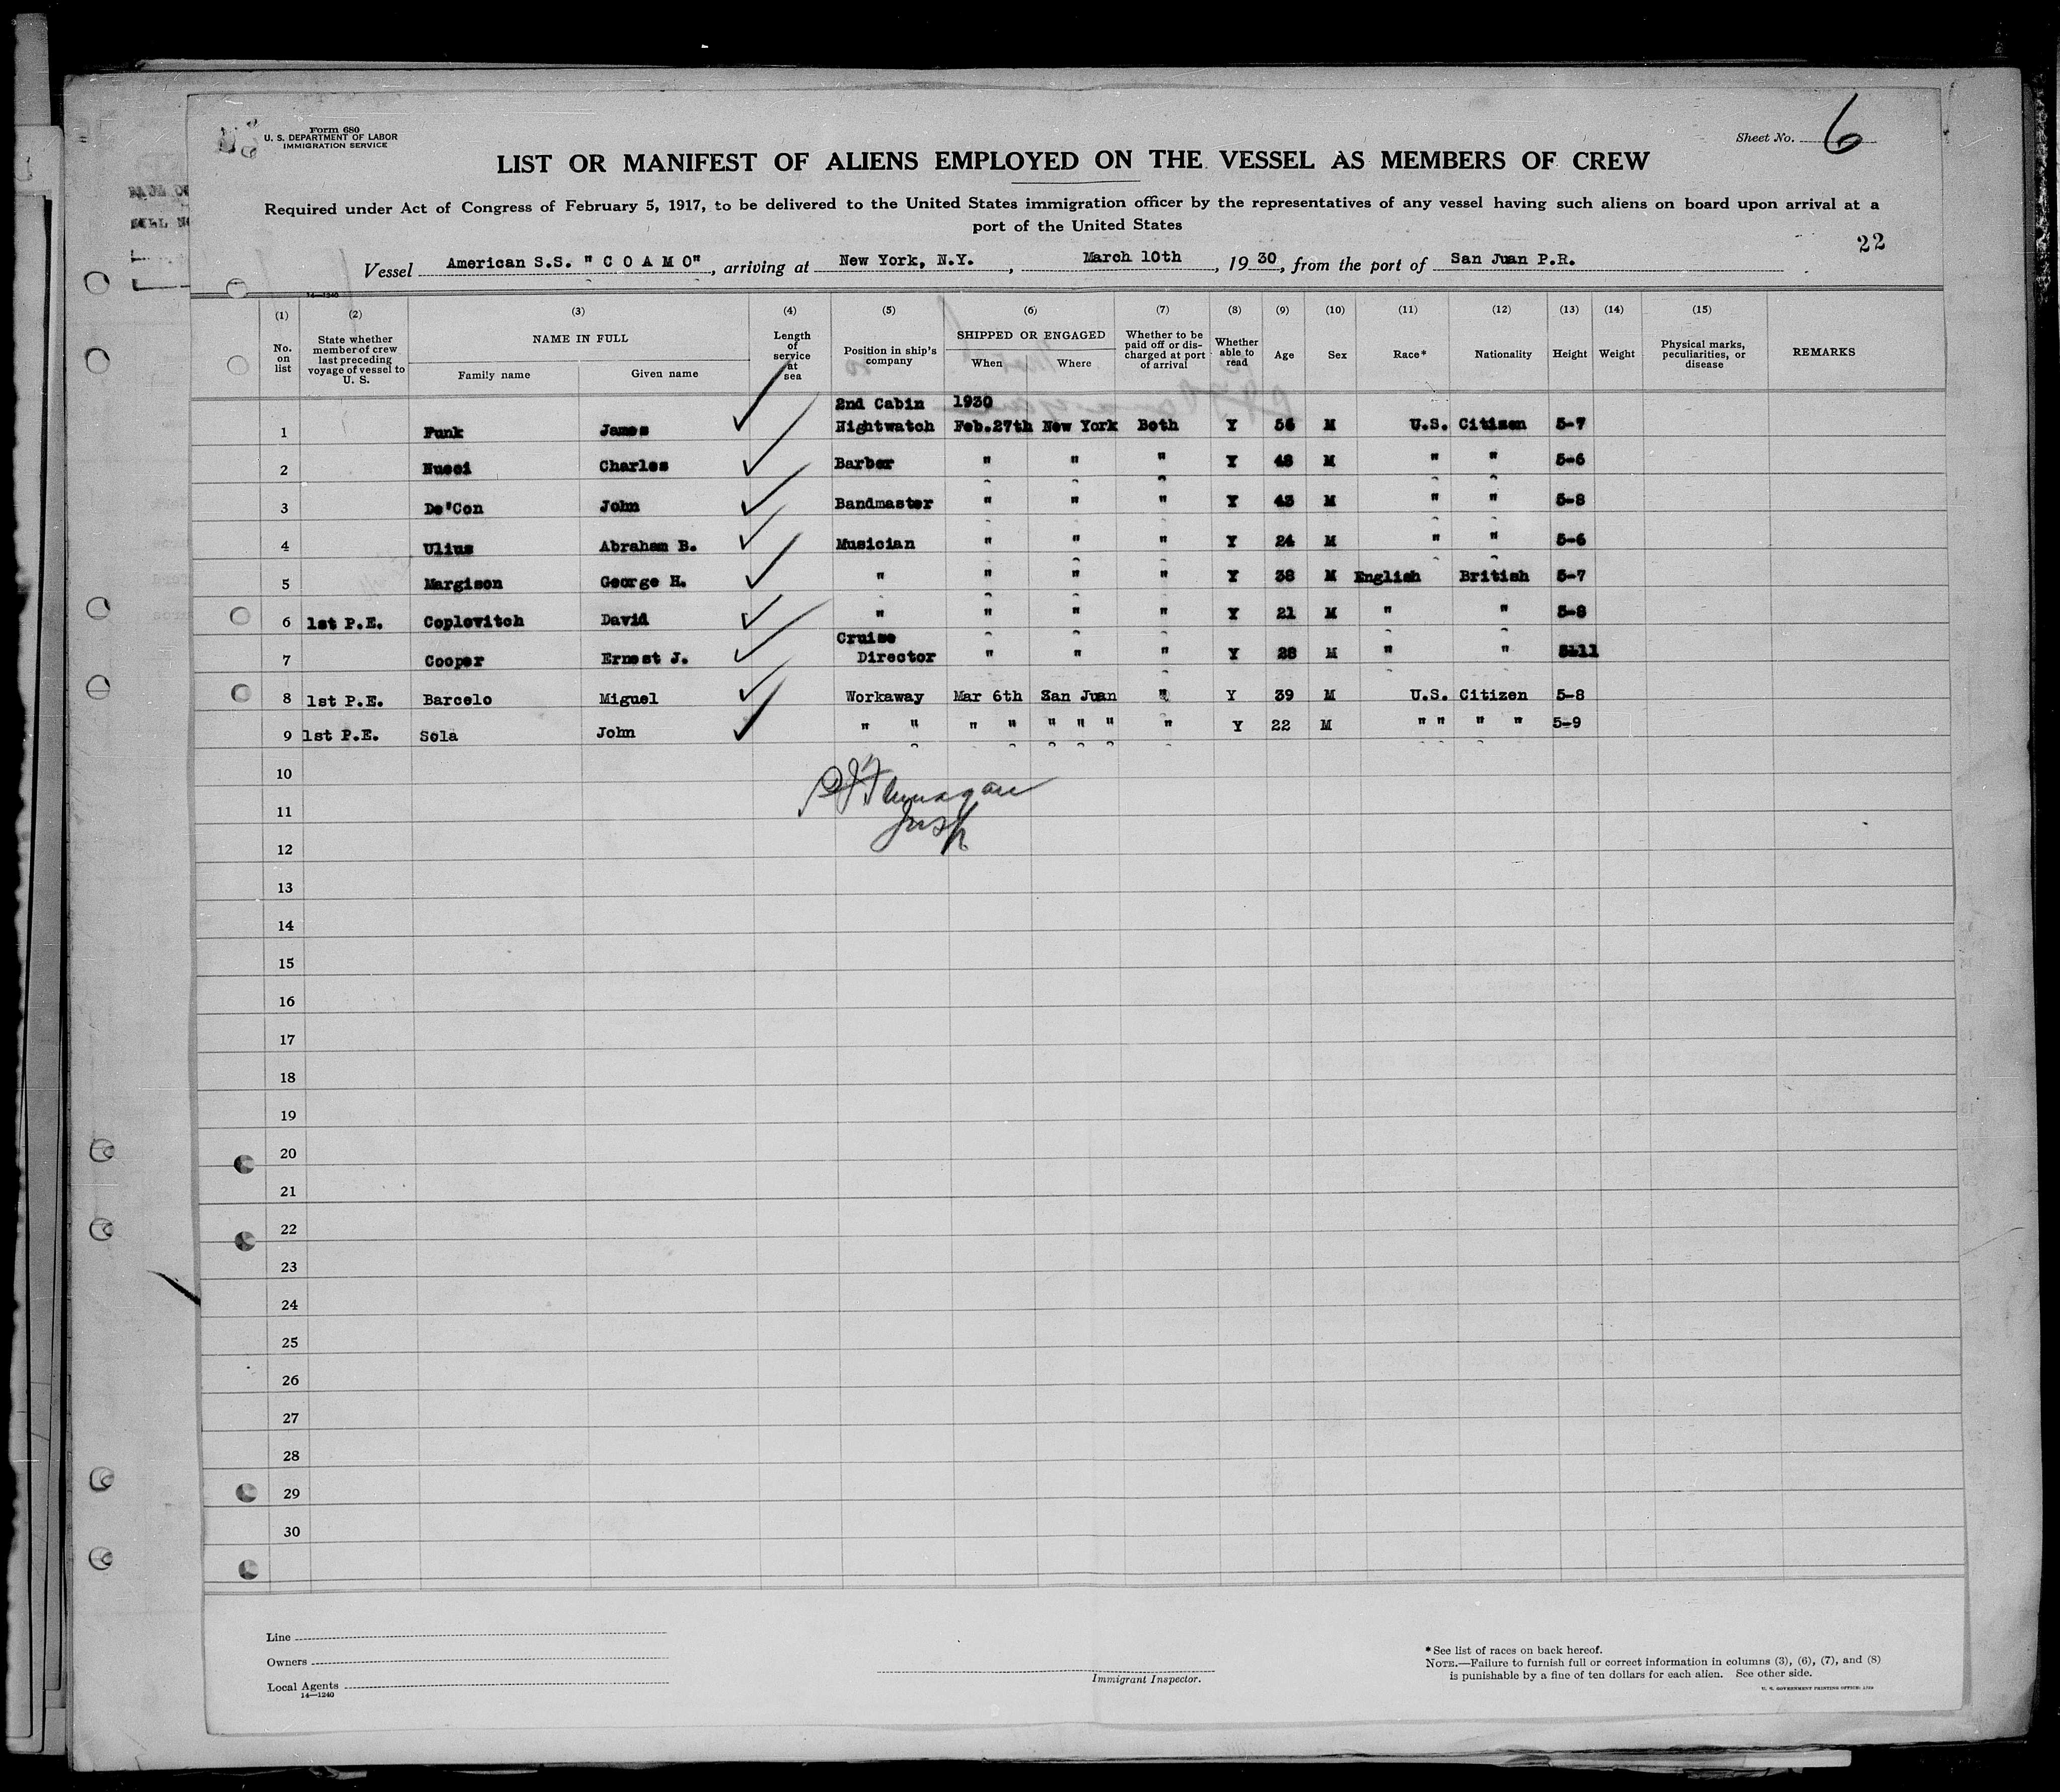 Form 680
U. S. DEPARTMENT OF LABOR
IMMIGRATION SERVICE
Sheet No. 6
LIST OR MANIFEST OF ALIENS EMPLOYED ON THE VESSEL AS MEMBERS OF CREW
Required under Act of Congress of February 5, 1917, to be delivered to the United States immigration officer by the representatives of any vessel having such aliens on board upon arrival at a
port of the United States
22
Vessel American S.S. " C O A M O", arriving at New York, N.Y., March 10th, 1930, from the port of San Juan P.R.
14—1240
(1) (2) (3) (4) (5) (6) (7) (8) (9) (10) (11) (12) (13) (14) (15)
No. on list State whether member of crew last preceding voyage of vessel to U. S. NAME IN FULL Family name Given name Length of service at sea Position in ship's company SHIPPED OR ENGAGED When Where Whether to be paid off or discharged at port of arrival Whether able to read Age Sex Race* Nationality Height Weight Physical marks, peculiarities, or disease REMARKS
2nd Cabin 1930
1 Funk James Nightwatch Feb.27th New York Both Y M U.S. Citizen 5-7
2 Nucci Charles Barber " " " Y 48 M " " 5-6
3 De'Con John Bandmaster " " " Y 43 M " " 5-8
4 Ulius Abraham B. Musician " " " Y 24 M " " 5-6
5 Margison George H. " " " " Y 38 M English British 5-7
6 1st P.E. Coplovitch David " " " " Y 21 M " " 5-8
Cruise
7 Cooper Ernest J. Director " " " Y 28 M " " 5-11
8 1st P.E. Barcelo Miguel Workaway Mar 6th San Juan " Y 39 M U.S. Citizen 5-8
9 1st P.E. Sola John " " " " " " " " Y 22 M " " " " 5-9
10
11
12
13
14
15
16
17
18
19
20
21
22
23
24
25
26
27
28
29
30
Line
Owners
Local Agents
14—1240
Immigrant Inspector.
*See list of races on back hereof.
NOTE.—Failure to furnish full or correct information in columns (3), (6), (7), and (8)
is punishable by a fine of ten dollars for each alien. See other side.